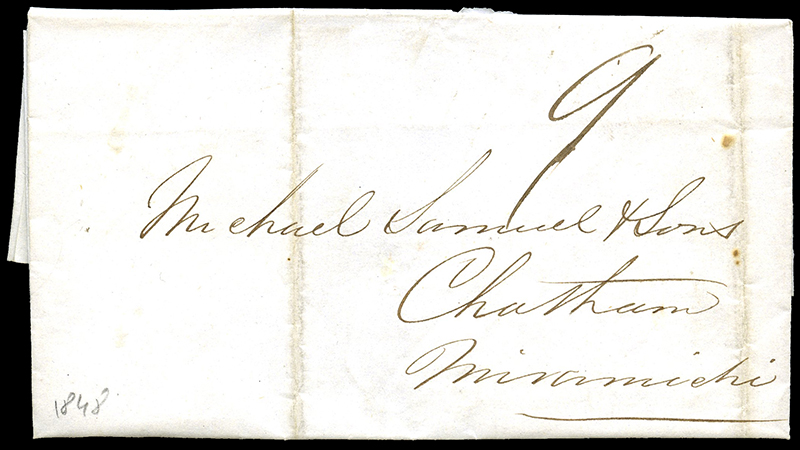 9
Michael Samuel & Sons
Chatham
Miramichi
1848